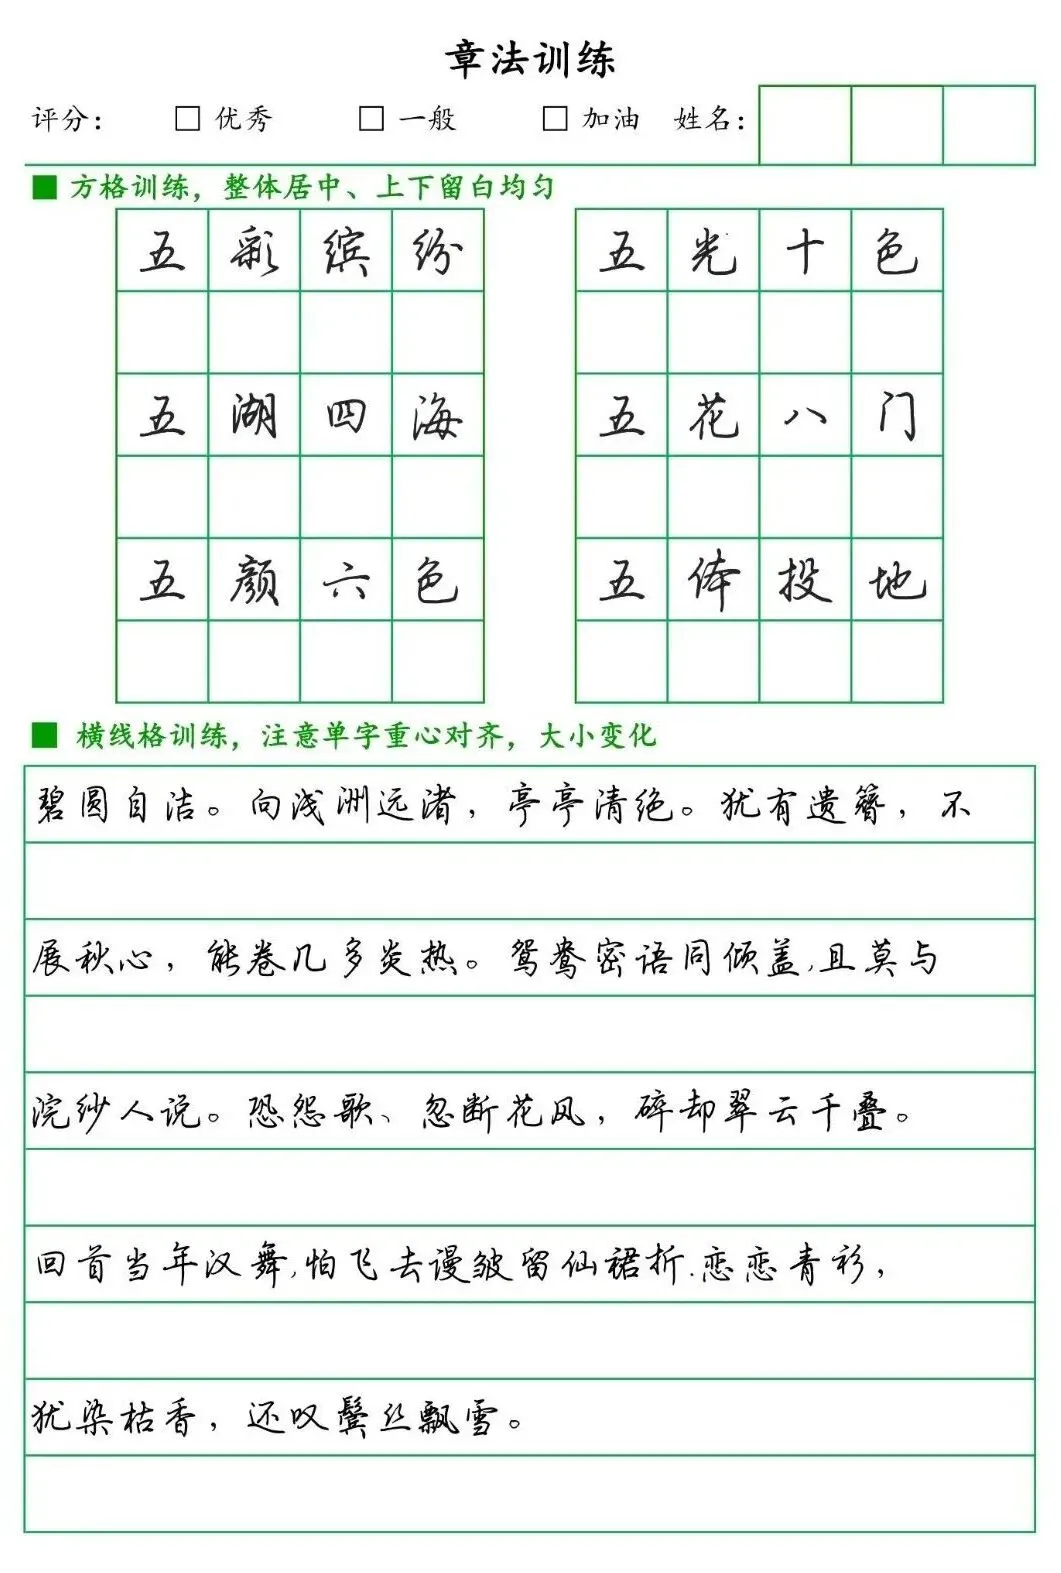 章法训练
评分： □ 优秀 □ 一般 □ 加油 姓名：
■ 方格训练，整体居中、上下留白均匀
五彩缤纷 五光十色
五湖四海 五花八门
五颜六色 五体投地
■ 横线格训练，注意单字重心对齐，大小变化
碧圆自洁。向浅洲远渚，亭亭清绝。犹有遗簪，不
展秋心，能卷几多炎热。鸳鸯密语同倾盖，且莫与
浣纱人说。恐怨歌、忽断花风，碎却翠云千叠。
回首当年汉舞，怕飞去谩皱留仙裙折.恋恋青衫，
犹染枯香，还叹鬓丝飘雪。